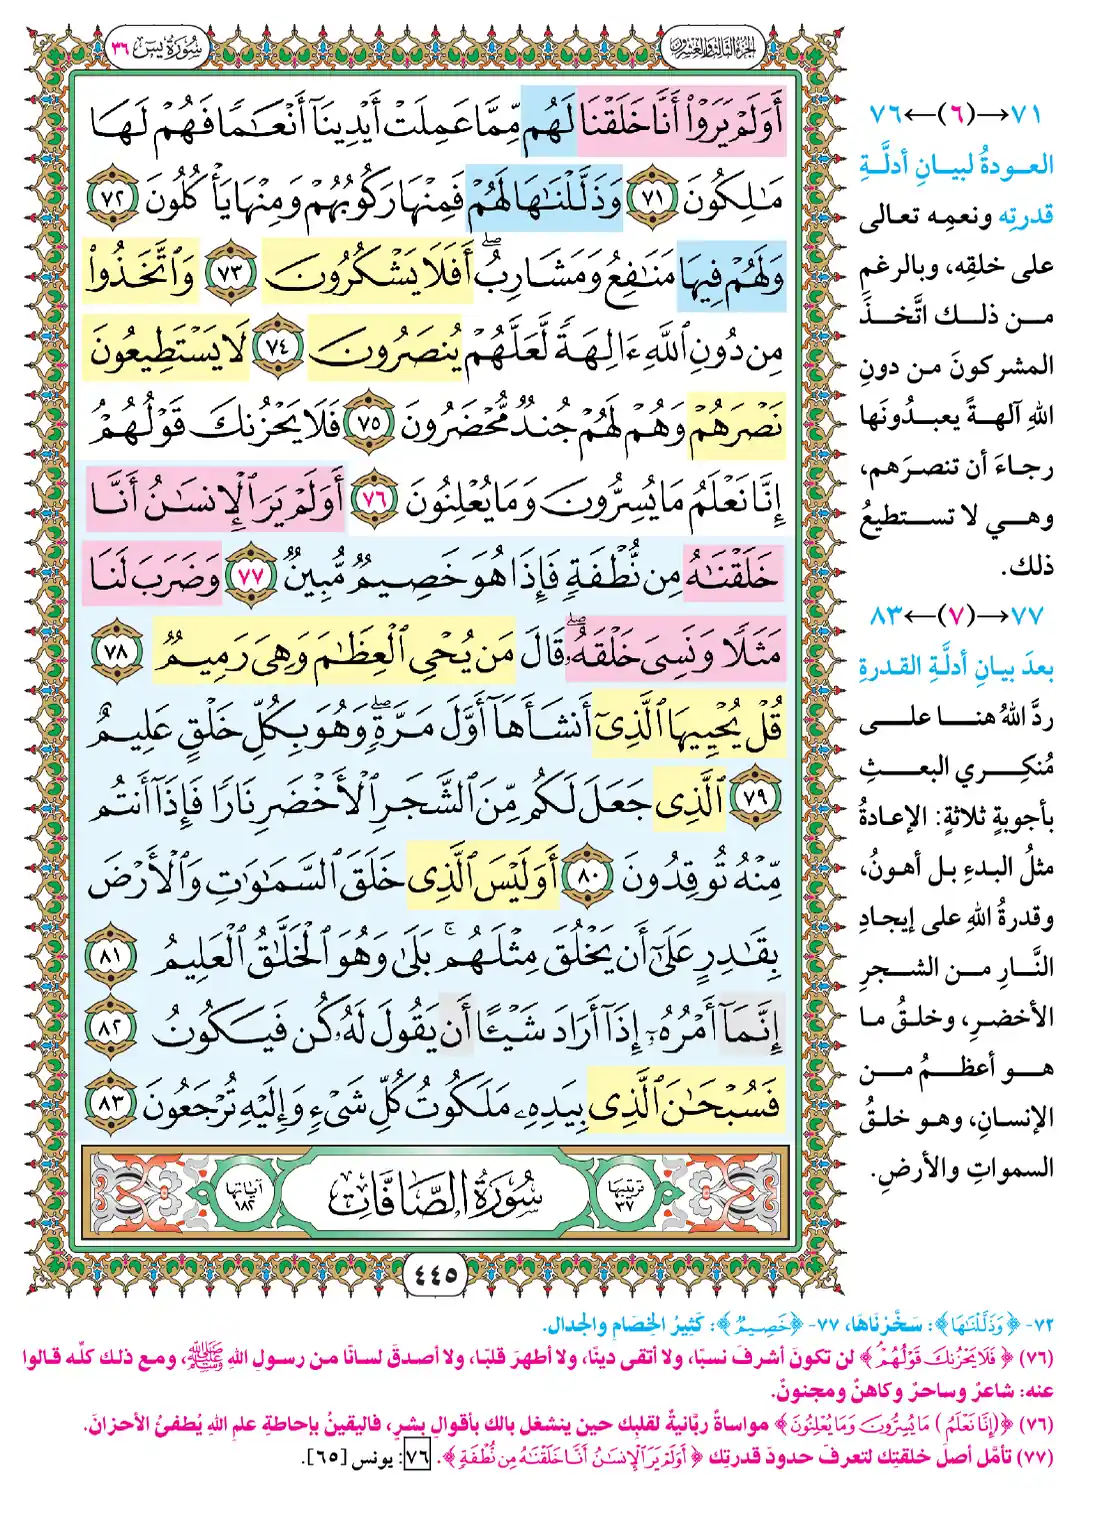 سُورَةُ يسٓ ٣٦
الجزء الثالث والعشرون
أَوَلَمْ يَرَوْا۟ أَنَّا خَلَقْنَا لَهُم مِّمَّا عَمِلَتْ أَيْدِينَآ أَنْعَـٰمًا فَهُمْ لَهَا
مَـٰلِكُونَ ٧١ وَذَلَّلْنَـٰهَا لَهُمْ فَمِنْهَا رَكُوبُهُمْ وَمِنْهَا يَأْكُلُونَ ٧٢
وَلَهُمْ فِيهَا مَنَـٰفِعُ وَمَشَارِبُ ۖ أَفَلَا يَشْكُرُونَ ٧٣ وَٱتَّخَذُوا۟
مِن دُونِ ٱللَّهِ ءَالِهَةً لَّعَلَّهُمْ يُنصَرُونَ ٧٤ لَا يَسْتَطِيعُونَ
نَصْرَهُمْ وَهُمْ لَهُمْ جُندٌ مُّحْضَرُونَ ٧٥ فَلَا يَحْزُنكَ قَوْلُهُمْ ۘ
إِنَّا نَعْلَمُ مَا يُسِرُّونَ وَمَا يُعْلِنُونَ ٧٦ أَوَلَمْ يَرَ ٱلْإِنسَـٰنُ أَنَّا
خَلَقْنَـٰهُ مِن نُّطْفَةٍ فَإِذَا هُوَ خَصِيمٌ مُّبِينٌ ٧٧ وَضَرَبَ لَنَا
مَثَلًا وَنَسِىَ خَلْقَهُۥ ۖ قَالَ مَن يُحْىِ ٱلْعِظَـٰمَ وَهِىَ رَمِيمٌ ٧٨
قُلْ يُحْيِيهَا ٱلَّذِىٓ أَنشَأَهَآ أَوَّلَ مَرَّةٍ ۖ وَهُوَ بِكُلِّ خَلْقٍ عَلِيمٌ
٧٩ ٱلَّذِى جَعَلَ لَكُم مِّنَ ٱلشَّجَرِ ٱلْأَخْضَرِ نَارًا فَإِذَآ أَنتُم
مِّنْهُ تُوقِدُونَ ٨٠ أَوَلَيْسَ ٱلَّذِى خَلَقَ ٱلسَّمَـٰوَٰتِ وَٱلْأَرْضَ
بِقَـٰدِرٍ عَلَىٰٓ أَن يَخْلُقَ مِثْلَهُم ۚ بَلَىٰ وَهُوَ ٱلْخَلَّـٰقُ ٱلْعَلِيمُ ٨١
إِنَّمَآ أَمْرُهُۥٓ إِذَآ أَرَادَ شَيْـًٔا أَن يَقُولَ لَهُۥ كُن فَيَكُونُ ٨٢
فَسُبْحَـٰنَ ٱلَّذِى بِيَدِهِۦ مَلَكُوتُ كُلِّ شَىْءٍ وَإِلَيْهِ تُرْجَعُونَ ٨٣
ترتيبها ٣٧
سُورَةُ الصَّافَّاتِ
آياتها ١٨٢
٤٤٥
٧١→(٦)←٧٦
العودةُ لبيانِ أدلَّةِ
قدرتِه ونعمِه تعالى
على خلقِه، وبالرغمِ
من ذلك اتَّخذَ
المشركونَ من دونِ
اللهِ آلهةً يعبدُونَها
رجاءَ أن تنصرَهم،
وهي لا تستطيعُ
ذلك.
٧٧→(٧)←٨٣
بعدَ بيانِ أدلَّةِ القدرةِ
ردَّ اللهُ هنا على
مُنكِري البعثِ
بأجوبةٍ ثلاثةٍ: الإعادةُ
مثلُ البدءِ بل أهونُ،
وقدرةُ اللهِ على إيجادِ
النَّارِ من الشجرِ
الأخضرِ، وخلقُ ما
هو أعظمُ من
الإنسانِ، وهو خلقُ
السمواتِ والأرضِ.
٧٢- ﴿وَذَلَّلْنَـٰهَا﴾: سَخَّرْنَاهَا، ٧٧- ﴿خَصِيمٌ﴾: كَثِيرُ الخِصَامِ والجدالِ.
(٧٦) ﴿فَلَا يَحْزُنكَ قَوْلُهُمْ﴾ لن تكونَ أشرفَ نسبًا، ولا أتقى دينًا، ولا أطهرَ قلبًا، ولا أصدقَ لسانًا من رسولِ اللهِ ﷺ، ومع ذلك كلّه قالوا
عنه: شاعرٌ وساحرٌ وكاهنٌ ومجنونٌ.
(٧٦) ﴿(إِنَّا نَعْلَمُ) مَا يُسِرُّونَ وَمَا يُعْلِنُونَ﴾ مواساةٌ ربَّانيةٌ لقلبِك حين ينشغل بالك بأقوالِ بشرٍ، فاليقينُ بإحاطةِ علمِ اللهِ يُطفئُ الأحزانَ.
(٧٧) تأمَّل أصلَ خلقتِك لتعرفَ حدودَ قدرتِك ﴿أَوَلَمْ يَرَ ٱلْإِنسَـٰنُ أَنَّا خَلَقْنَـٰهُ مِن نُّطْفَةٍ﴾. ٧٦: يونس [٦٥].